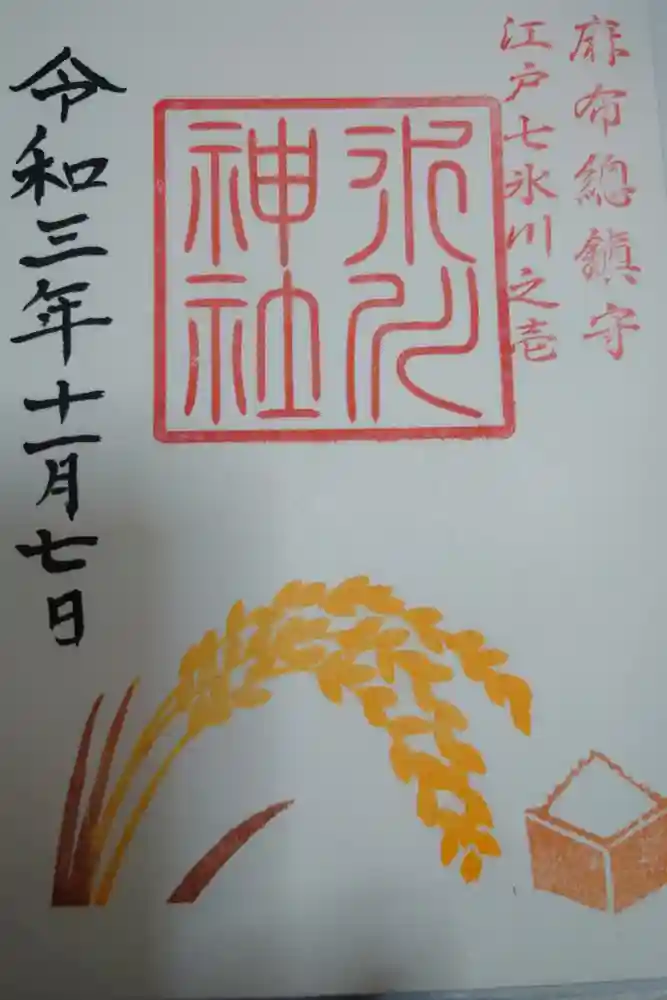 麻布総鎮守
江戸七氷川之壱
氷川
神社
令和三年十一月七日